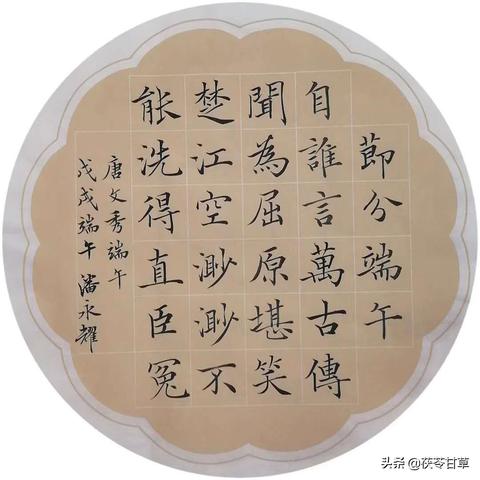 節分端午
自誰言萬古傳
聞為屈原堪笑
楚江空渺渺不
能洗得直臣冤
唐文秀端午
戊戌端午潘永耀
头条@茯苓甘草